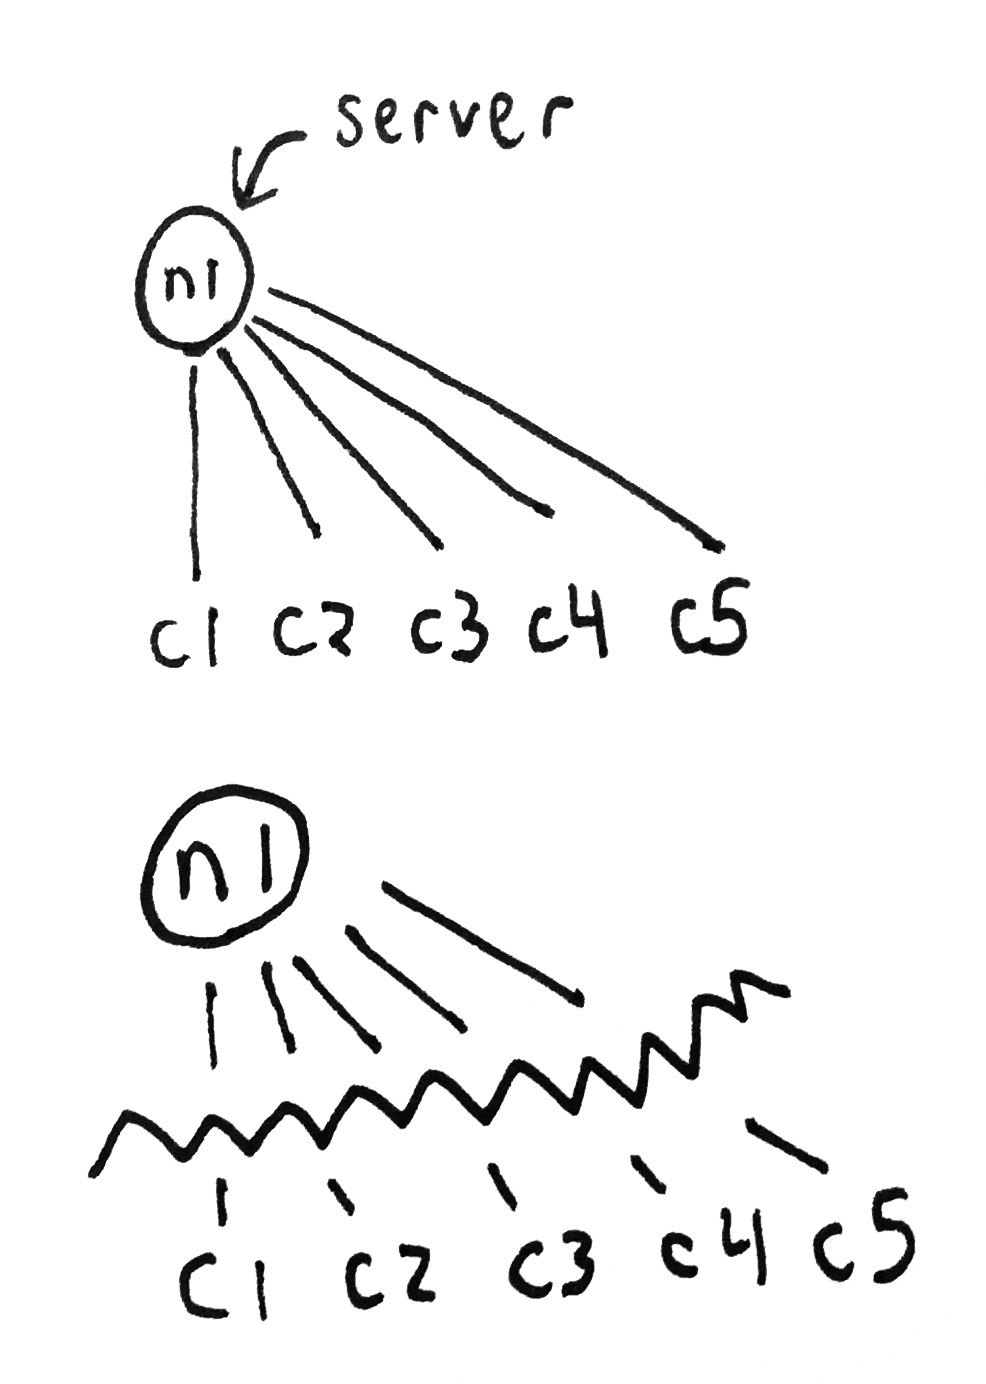 server
n1
c1 c2 c3 c4 c5
n1
c1 c2 c3 c4 c5